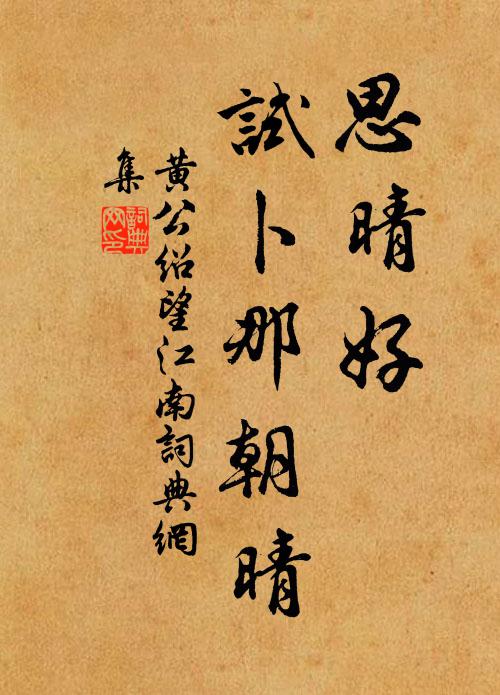 思晴好
試卜那朝晴
黃公紹望江南詞典網
集
詞典
网印